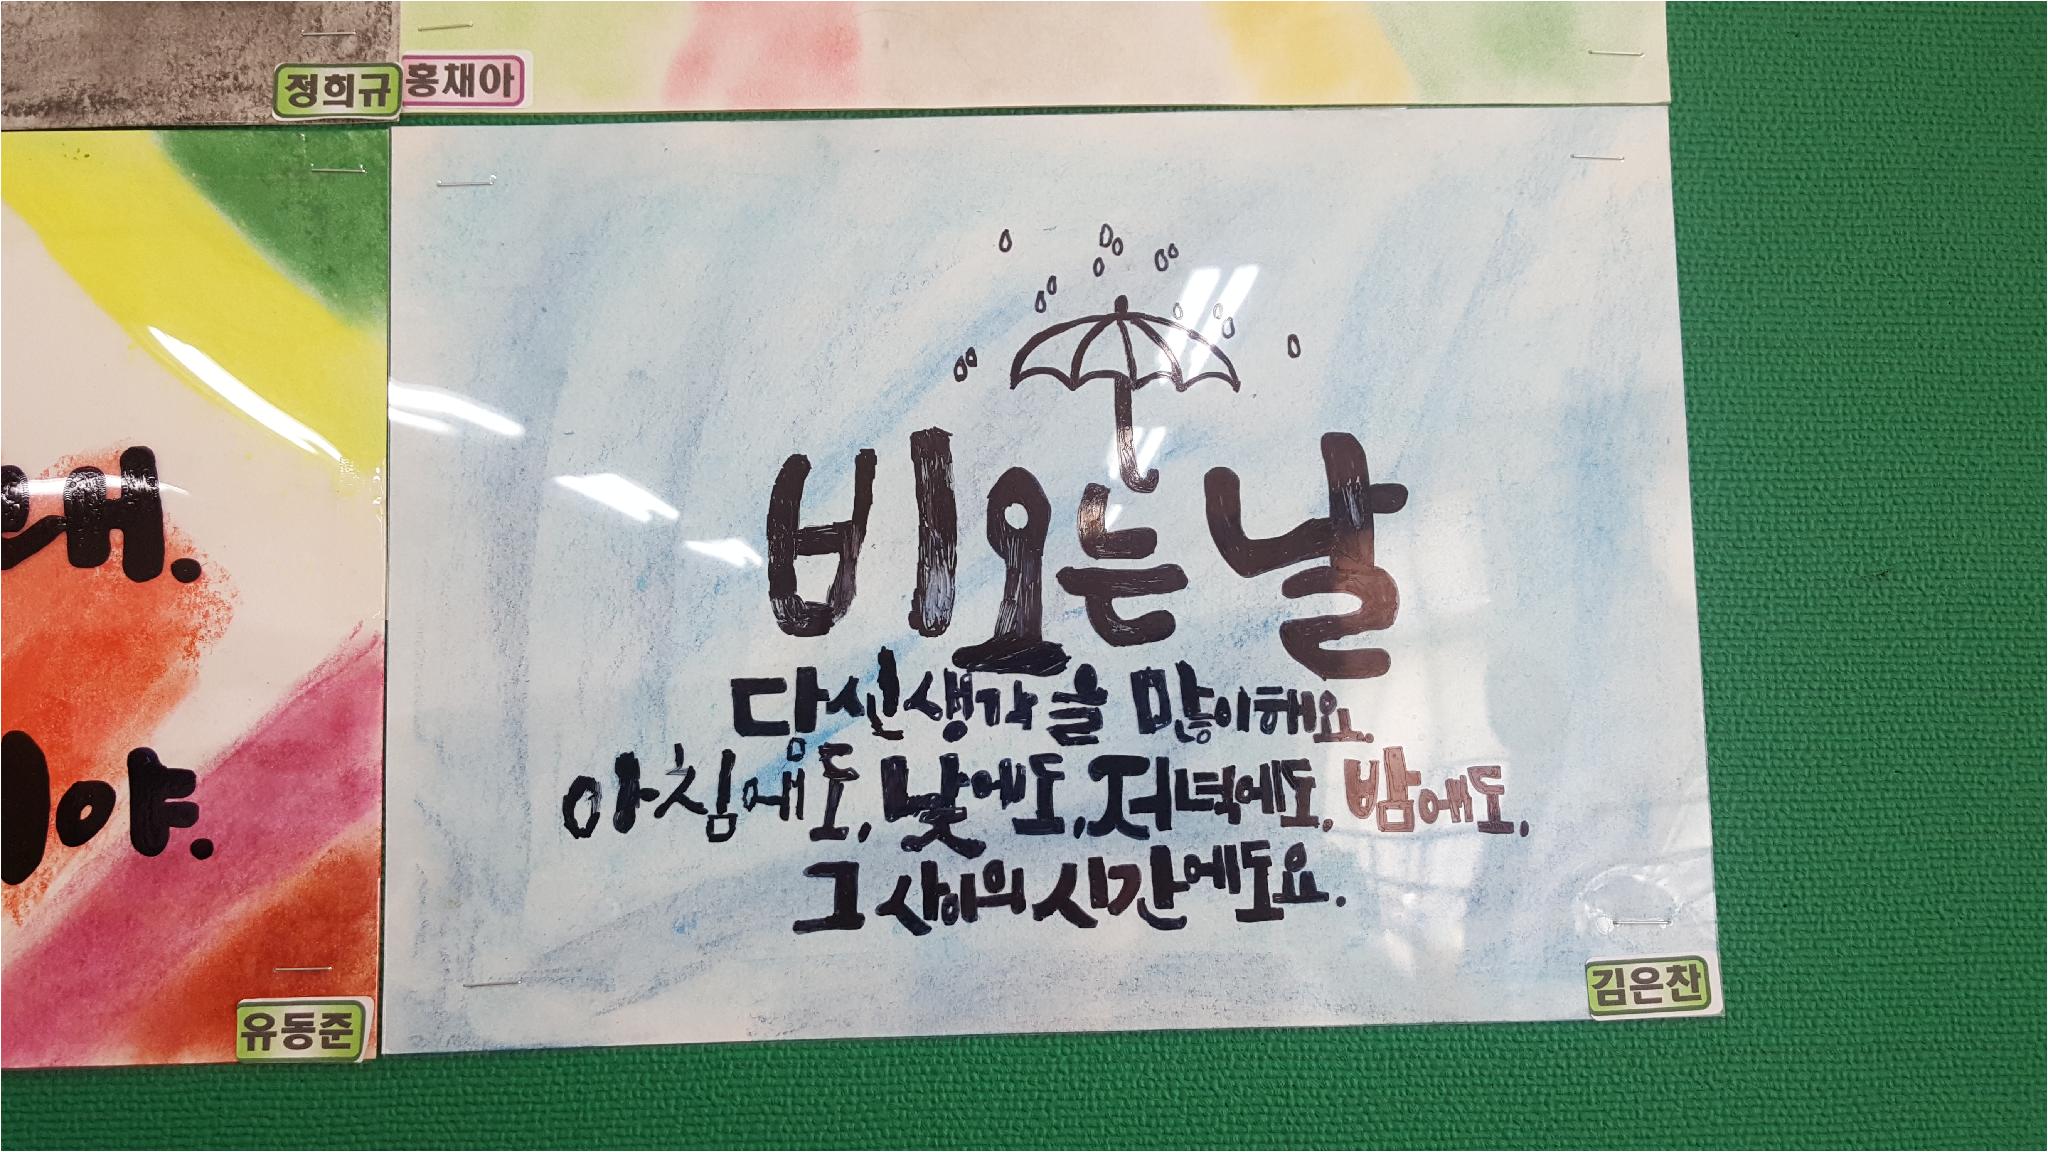 정희규
홍채아
비오는날
당신생각을 많이해요.
아침에도, 낮에도, 저녁에도, 밤에도,
그 사이의 시간에도요.
김은찬
야.
유동준